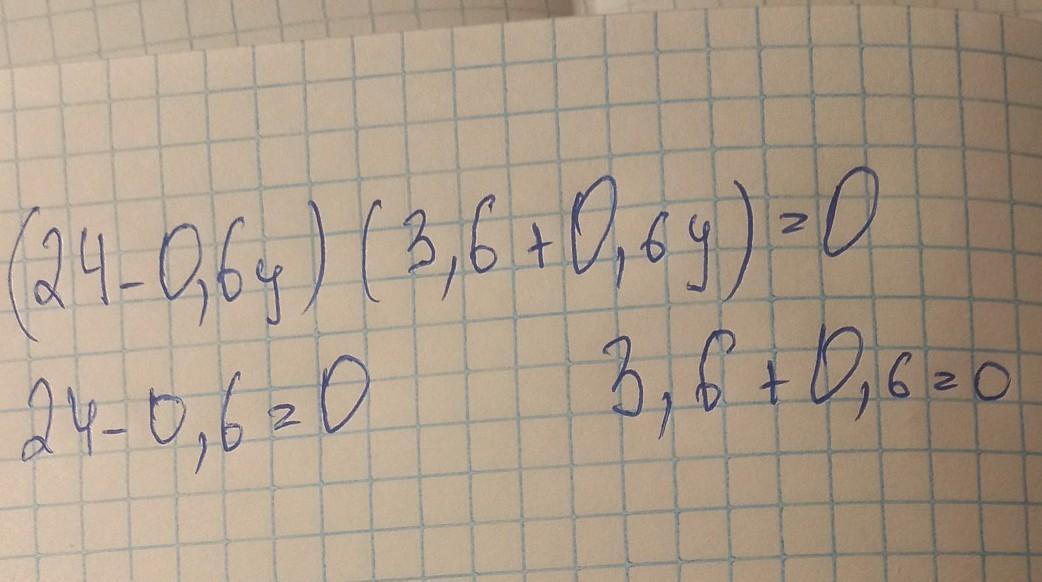 (24-0,6y)(3,6+0,6y)=0
24-0,6=0 3,6+0,6=0